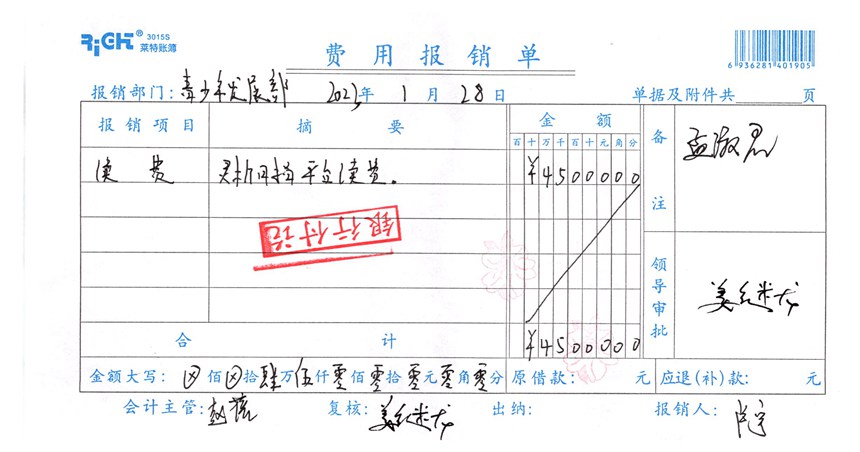 RiCH® 3015S
莱特账簿
费用报销单
6 936281 401905
报销部门:青少年发展部 2023年 1月 28日 单据及附件共 页
报销项目 摘要 金额 备注
百十万千百十元角分
续费 更新网授平台续费。 ¥4500000
银行付讫
领导审批
合计 ¥4500000
金额大写: ⊗佰⊗拾肆万伍仟零佰零拾零元零角零分 原借款: 元 应退(补)款: 元
会计主管: 复核: 出纳: 报销人: